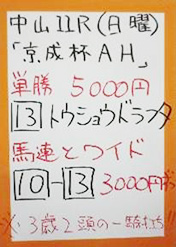 中山11R(日曜)
「京成杯AH」
単勝 5000円
13トウショウドラフタ
馬連とワイド
10-13 3000円ずつ
※3歳2頭の一騎打ち!!